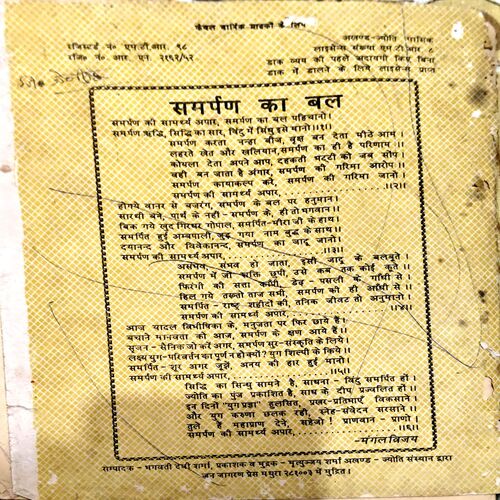 केवल वार्षिक ग्राहकों के लिए
अखण्ड-ज्योति मासिक
रजिस्टर्ड नं० एम.टी.आर. ९८
लाइसेंस संख्या एम.टी.आर. ८
रजि० नं० आर. एन. २१६२/५२
डाक व्यय की पहले अदायगी किए बिना
डाक में डालने के लिये लाइसेंस प्राप्त
समर्पण का बल
समर्पण की सामर्थ्य अपार, समर्पण का बल पहिचानो।
समर्पण ऋद्धि, सिद्धि का सार, बिंदु में सिंधु इसे मानो॥१॥
समर्पण करता नन्हा बीज, वृक्ष बन देता मीठे आम।
लहरते खेत और खलियान, समर्पण का ही है परिणाम॥
कोयला देता अपने आप, दहकती भट्टी को जब सौंप।
वही बन जाता है अंगार, समर्पण की गरिमा आरोप॥
समर्पण कायाकल्प करे, समर्पण की गरिमा जानो।
समर्पण की सामर्थ्य अपार,॥२॥
होगये वानर से बजरंग, समर्पण के बल पर हनुमान।
सारथी बने, पार्थ के नहीं - समर्पण के, ही तो भगवान॥
बिक गये खुद गिरधर गोपाल, समर्पित-मीरा जी के हाथ।
समर्पित हुई अम्बपाली, जुड़ गया नाम बुद्ध के साथ॥
दयानन्द और विवेकानन्द, समर्पण का जादू जानो।
समर्पण की सामर्थ्य अपार,॥३॥
असंभव, संभव हो जाता, इसी जादू के बलबूते
समर्पण में जो शक्ति छुपी, उसे कब तक कोई कूते॥
फिरंगी की सत्ता काँपी, डेढ़ - पसली के गाँधी से।
हिल गये तख्तो ताज सभी, समर्पण की ही आँधी से॥
समर्पित - राष्ट्र शहीदों की, तनिक जीवट तो अनुमानो।
समर्पण की सामर्थ्य अपार,॥४॥
आज बादल विभीषिका के, मनुजता पर फिर छाये हैं।
बचाने मानवता को आज, समर्पण के क्षण आये हैं॥
सृजन - सैनिक जो करें अगर, समर्पण सुर-संस्कृति के लिये
लक्ष्य युग-परिवर्तन का पूर्ण न हो क्यों? युग शिल्पी के किये॥
समर्पित - शूर अगर जूझें, अनय की हार हुई मानो।
समर्पण की सामर्थ्य अपार,॥५॥
सिद्धि का सिन्धु सामने है, साधना - बिंदु समर्पित हों
ज्योति का पुंज प्रकाशित है, साध के दीप प्रज्वलित हों॥
इन दिनों "युग प्रज्ञा" हुलसित, प्रखर-प्रतिभाएँ विकसाने।
और युग करुणा छलक रही, स्नेह-संवेदन सरसाने॥
तुले हैं महाप्राण देने, सहेजो! प्राणवान - प्राणो।
समर्पण की सामर्थ्य अपार,
-मंगल विजय
सम्पादक - भगवती देवी शर्मा, प्रकाशक व मुद्रक - मृत्युञ्जय शर्मा अखण्ड - ज्योति संस्थान द्वारा
जन जागरण प्रेस मथुरा २८१००३ में मुद्रित।